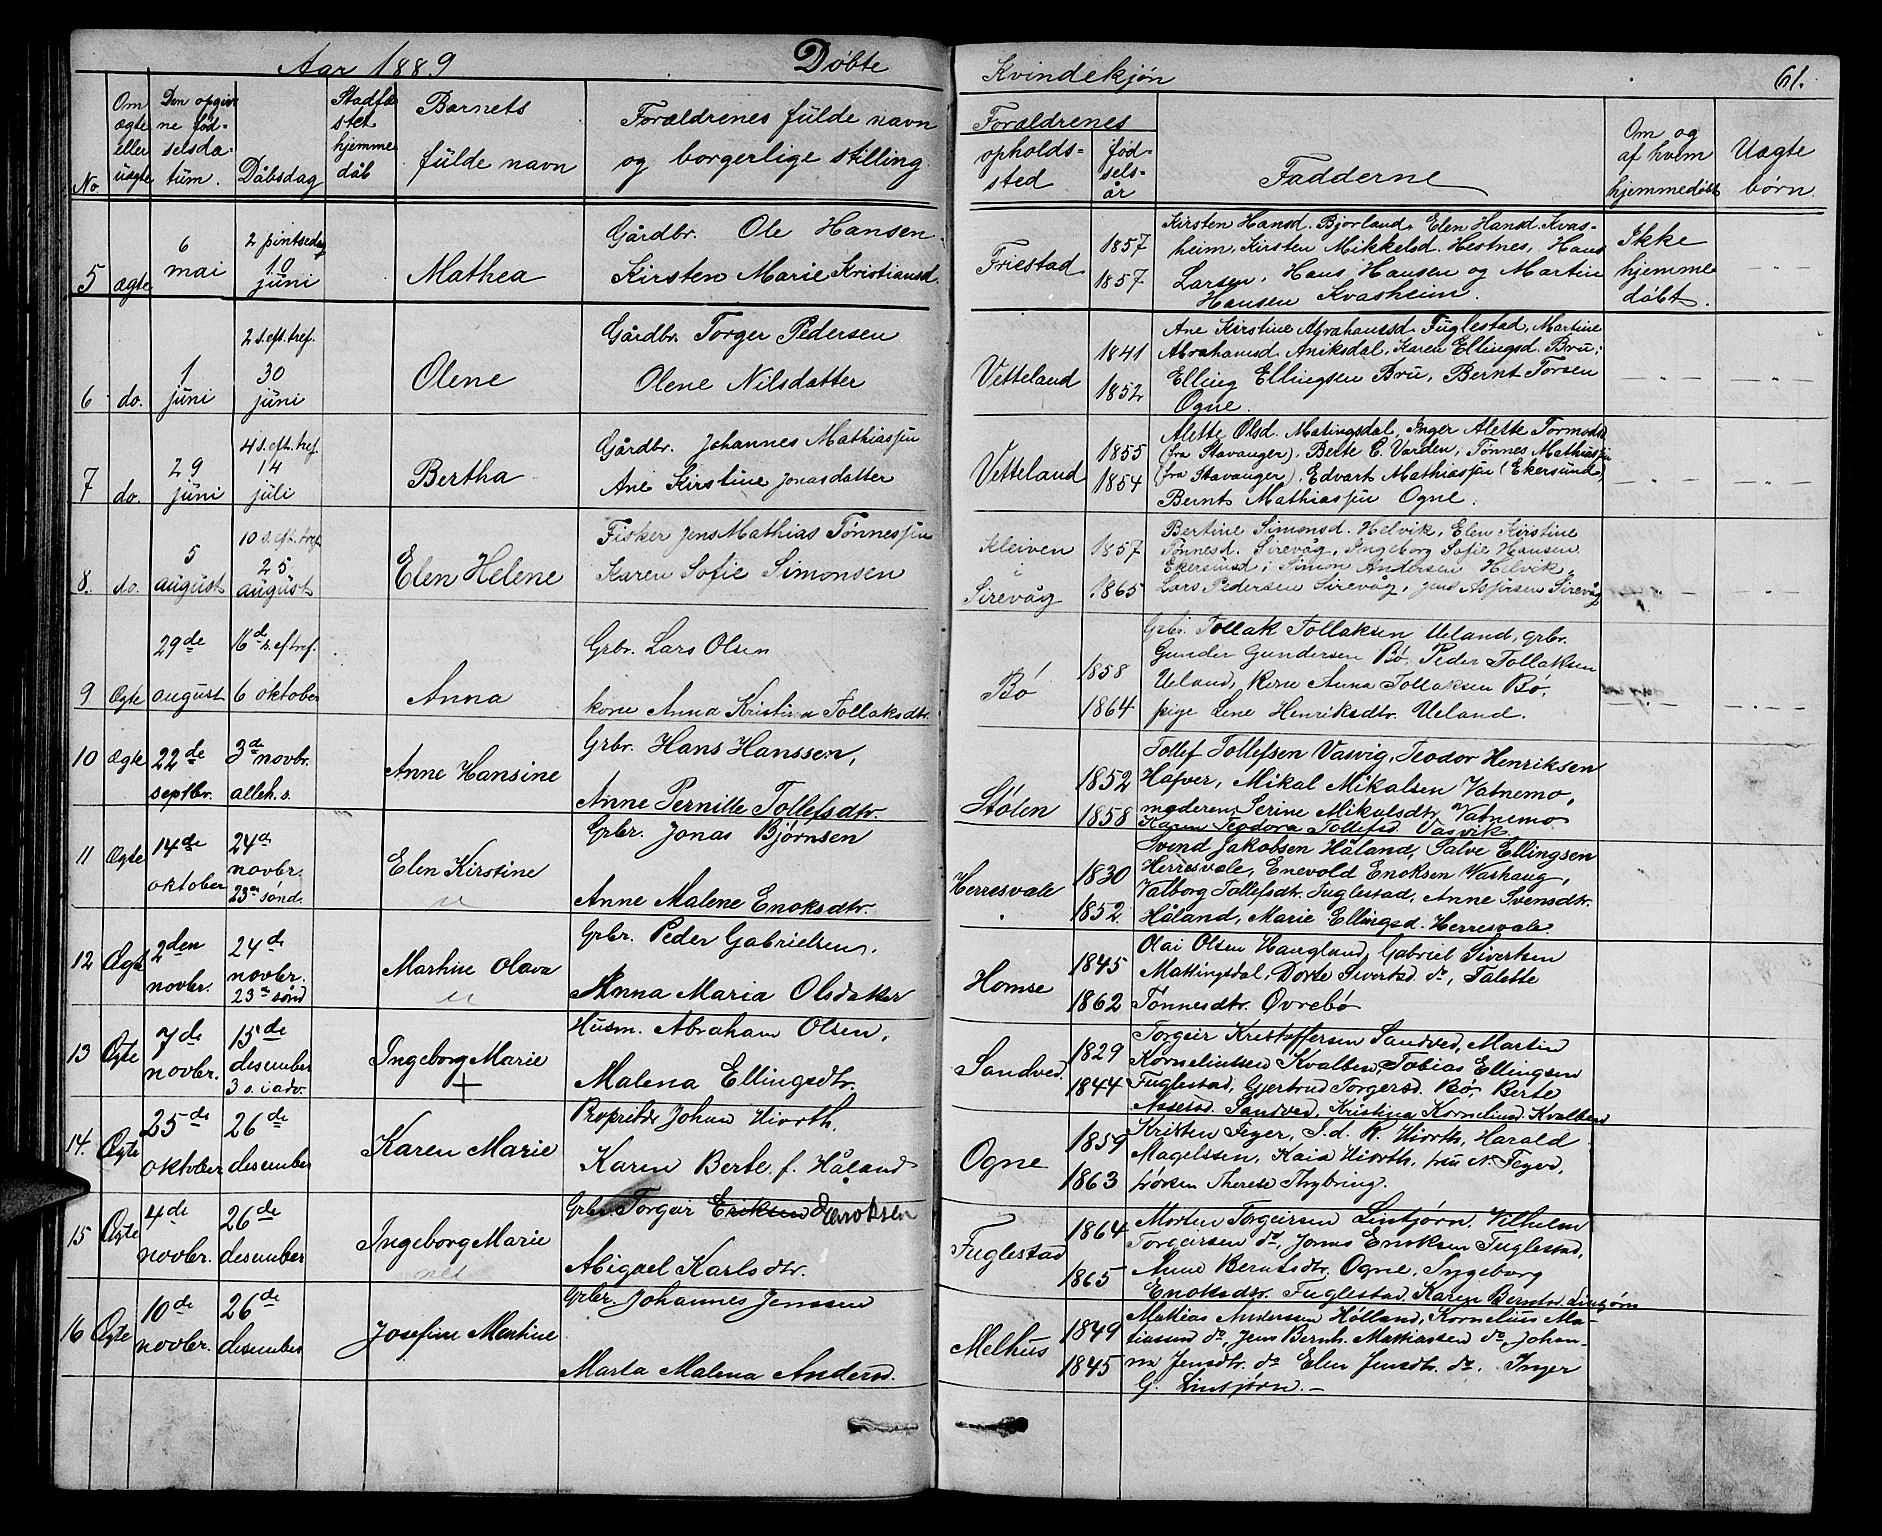 Aar 1889 Døbte
Kvindekjøn 61.
No
Om ægte eller uægte
Den opgivne fødselsdatum.
Dåbsdag
Stadfæstet hjemmedåb
Barnets fulde navn
Forældrenes fulde navn og borgerlige stilling.
Forældrenes opholdssted
fødselsår
Fadderne
Om og af hvem hjemmedøbt
Uægte børn.
5 ægte 6 mai 2 pintsedag 10 juni Mathea
Gårdbr. Ole Hansen
Kirsten Marie Kristiansd.
Friestad 1857 1857
Kirsten Hansd. Bjorland, Elen Hansd. Kvas-
heim, Kirsten Mikkelsd. Hestnes, Hans
Larsen, Hans Hansen og Martin
Hansen Kvasheim.
Ikke hjemmedøbt.
6 do. 1 juni 2 s. eft. tref. 30 juni Olene
Gårdbr. Torger Pedersen
Olene Nilsdatter
Vetteland 1841 1852
Ane Kirstine Abrahamsd. Fuglestad, Martine
Abrahamsd. Aniksdal, Karen Ellingsd. Bru,
Elling Ellingsen Bru, Bernt Torsen
Ogne.
7 do. 29 juni 4 s. eft. tref. 14 juli Bertha
Gårdbr. Johannes Mathiassen
Ane Kirstine Jonasdatter
Vetteland 1855 1854
Alette Olsd. Matingsdal, Inger Alette Tormodsd
(fra Stavanger), Berte C. Varden, Tønnes Mathiassen
(fra Stavanger), Edvart Mathiassen (Ekersund),
Bernt Mathiassen Ogne.
8. do. 5 august 10 s. eft. tref 25 august Elen Helene
Fisker Jens Mathias Tønnessen
Karen Sofie Simonsen
Kleiven i Sirevåg 1857 1865
Bertine Simonsd. Helvik, Elen Kirstine
Tønnesd. Sirevåg, Ingeborg Sofie Hansen
Ekersund, Simon Andersen Helvik,
Lars Pedersen Sirevåg, Jens Sirevåg
9 Ægte 29de august 16de s. ef tref. 6 oktober Anna
Grbr. Lars Olsen
kone Anna Kristina Tollaksdtr.
Bø 1858 1864
Grbr. Tollak Tollaksen Ueland, grbr.
Gunder Gundersen Bø, Peder Tollaksen
Ueland, Anna Tollaksen Bø,
pige Lene Henriksdtr. Ueland.
10 Ægte 22de septbr. 3de novbr. alleh. s. Anne Hansine
Grbr. Hans Hanssen,
Anne Pernille Tollefsdtr.
Stølen 1852 1858
Tollef Tollefsen Vasvig, Teodor Henriksen
Hafver, Mikal Mikalsen Vatnemo,
moderen, Serine Mikalsdtr. Vatnemo
Karen Teodora Tollefsd. Vasvik
11 Ægte 14de oktober 24de novbr. 23de sønd. Elen Kirstine
Grbr. Jonas Bjørnsen
Anne Malene Enoksdtr.
Herresvale 1830 1852
Svend Jakobsen Håland, Salve Ellingsen
Herresvale, Enevold Enoksen Vashaug,
Valborg Tollefsdtr. Fuglestad, Anne Svensdtr.
Håland, Marie Ellingsd. Herresvale
12 Ægte 2den novbr. 24de novbr. 23de sønd Martine Olava
Grbr. Peder Gabrielsen,
Anna Maria Olsdatter
Homse 1845 1862
Olai Olsen Haugland, Gabriel Sivertsen
Mattingsdal, Dorte Sivertsd. do, Talette
Tønnesdtr. Øvrebø
13 Ægte 7de novbr. 15de desember 3 s. i adv. Ingeborg Marie
Husm. Abraham Olsen,
Malena Ellingsdtr.
Sandved. 1829 1844
Torgeir Kristoffersen Sandved, Martin
Korneliussen Kvalben, Tobias Ellingsen
Fuglestad, Gjertrud Torgersd. Bø, Berte
Assersd. Sandved, Kristina Korneliusd. Kvalben
14. Ægte 25de oktober 26de desember Karen Marie
Johan Hiorth,
Karen Berte, f. Håland
Ogne 1859 1863
Kristen Feyer, S. d. R. Hiorth, Harald
Magelssen, Kaia Hiorth, fru N. Feyer,
frøken Therese Thybring.
15 Ægte 4de novbr. 26de desember Ingeborg Marie
Grbr. Torgeir Eriksen Enoksen
Abigael Karlsdtr.
Fuglestad 1864 1865
Morten Torgeirsen Lintjørn, Vilhelm
Torgeirsen do, Jonas Enoksen Fuglestad,
Anne Berntsdtr. Ogne, Ingeborg
Enoksdtr. Fuglestad, Karen Berntsd. Lintjørn
16 Ægte 10de novbr. 26de desember Josefine Martine
Grbr. Johannes Jenssen
Marta Malena Andersd.
Melhus 1849 1845
Mathias Andersen Hølland, Kornelius Ma-
tiassen do, Jens Bernh. Mathiassen do, Johan-
na Jensdtr. do Elen Jensdtr. do. Inger
G. Lintjørn.